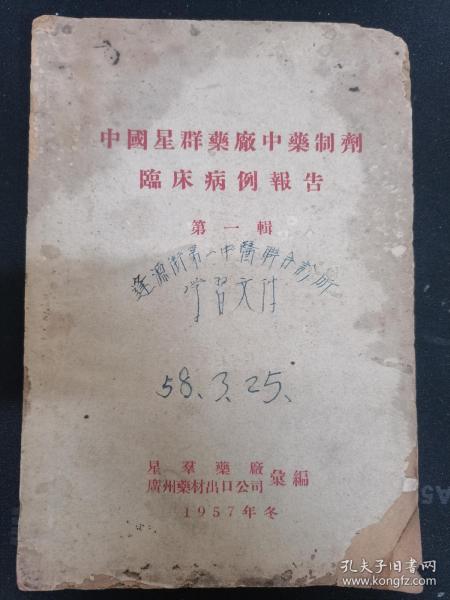 中國星群藥廠中藥制劑
臨床病例報告
第一輯
逢源街第二中醫聯合診所
学習文件
58.3.25.
星羣藥廠
廣州藥材出口公司
彙編
1957年冬
孔夫子旧书网
www.kongfz.com